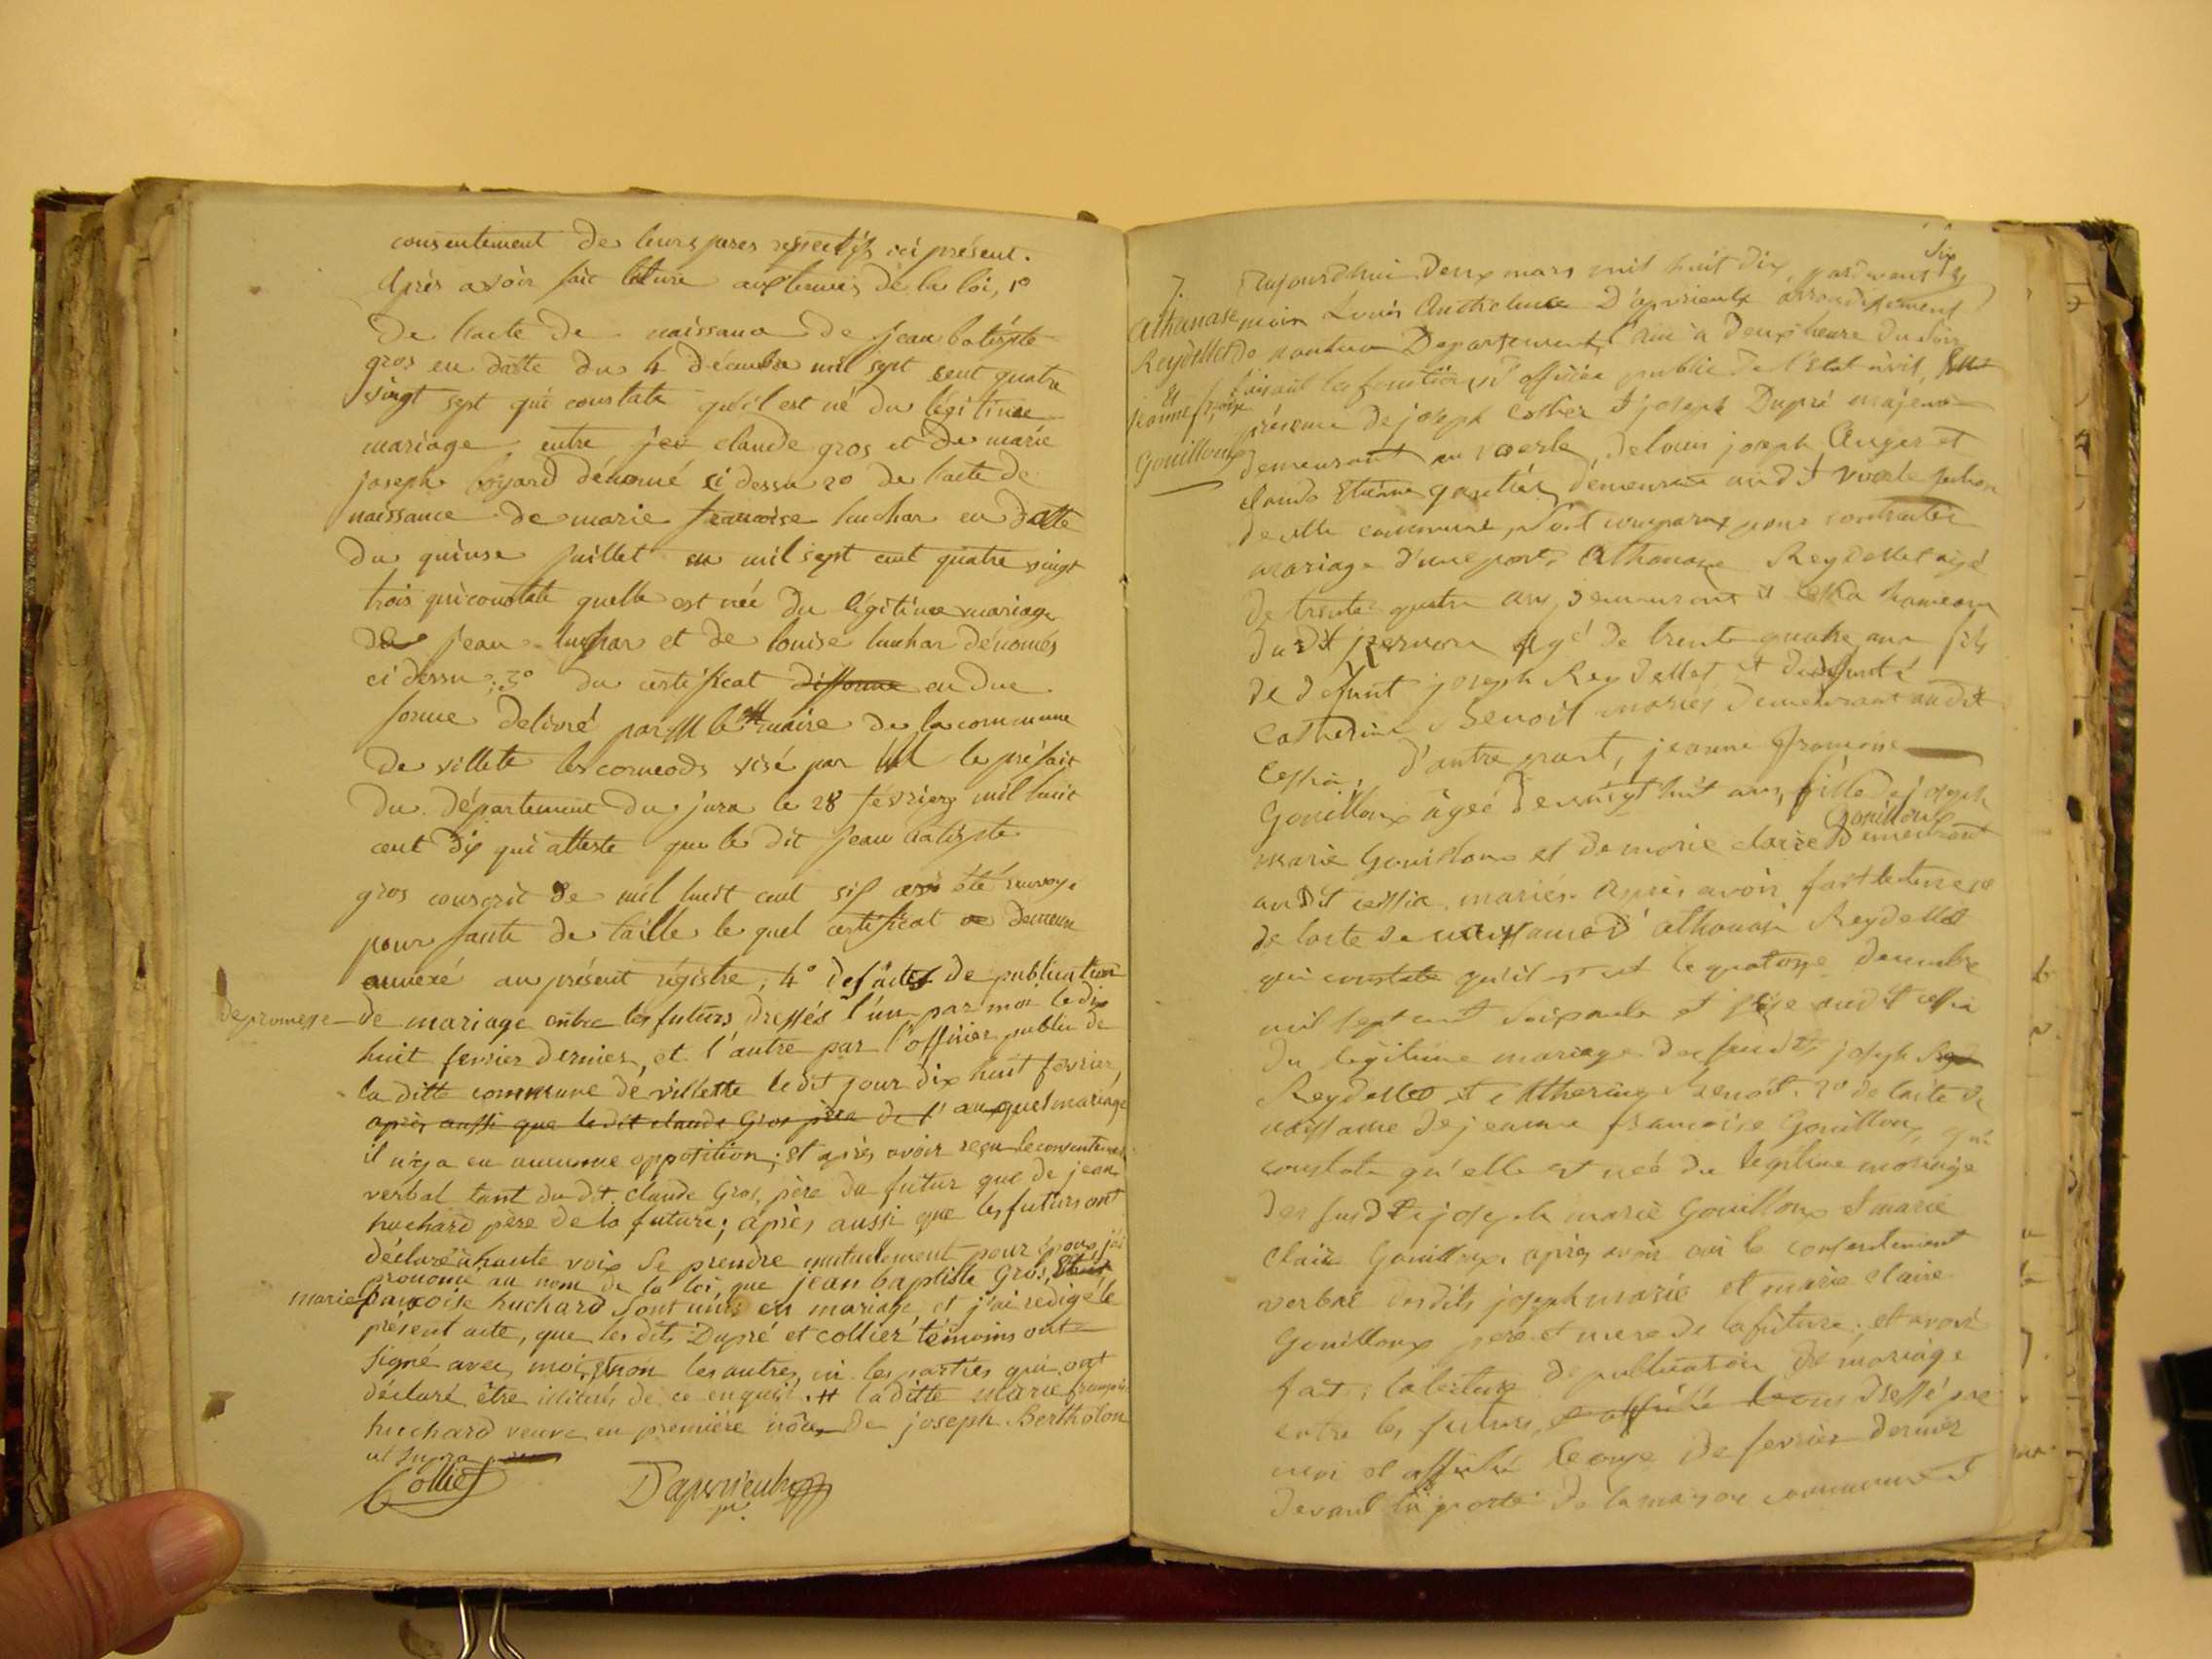 consentement de leurs peres respectifs ici présent.
Après avoir fait leture aux termes de la loi, 1o
De l'acte de naissance de jean batiste
gros en datte du 4 décembre mil sept cent quatre
vingt sept qui constate qu'il est né du légitime
mariage entre claude gros et de marie
joseph dénomé ci dessu 2o de l'acte de
naissance de marie francoise huchar en datte
du quinse juillet mil sept cent quatre vingt
trois qui constate quelle est née du légitime mariage
de jean huchar et de louise huchar dénomés
ci dessu; 3o du certificat en due
forme delivré par M le maire de la commune
de villete les cornods visé par M le préfait
du département du jura le 28 févriery mil huit
cent dix qui atteste que le dit jean batiste
gros conscrit de mil huit cent été
pour faute de taille le quel certificat demeure
annexé au présent régistre; 4o des actes de publication
de promesse
de mariage entre les futurs dressés l'un par moi le dix
huit fevrier dernier, et l'autre par l'officier public de
la ditte commune de villette ledit jour dix huit fevrier,
après aussi que le dit claude Gros père de l' auxquel mariage
il n'y a eu aucunne opposition; et après avoir reçu le consentement
verbal tant du dt. claude Gros, père du futur que de jean
huchard père de la future; après aussi que les futurs ont
déclaré à haute voix se prendre mutuellement pour epoux j'ai
prononcé au nom de la loi, que jean baptiste Gros, et
marie francoise huchard sont unis en mariage et j'ai redigé le
présent acte, que les dits Dupré et collier témoins ont
signé avec moi, et non les autres, ni les parties qui ont
déclaré être illitérés de ce enquis. # la ditte marie françoise
huchard veuve en première nôce de joseph Bertholon
ut supra
Collier
Dapvrieulx
Six
7.
Athanase
Reydellet
et
jeanne frçoise
Gouilloux
aujourdhui deux mars mil huit dix, pardevent
moi Louis Anthelme D'apvrieulx arrondissement
de nantua Departement l'ain à deux heure du soir
faisant les fonctions d'officier public de l'Etat civil,
présence de joseph collier et joseph Dupré majeurs
demeurant au voerle, de louis joseph Auger et
claude Etienne gautier, demeurant audt voerle
de cette commune, sont comparu pour contracter
mariage d'une part, Athanase Reydellet agé
de trente quatre ans, demeurant à cessia hameau
dudt agé de trente quatre ans fils
de défunt joseph Reydellet et de defunte
Catherine Benoit mariés demeurant audit
cessia, d'autre part, jeanne francoise
Gouilloux âgée de vingt huit ans, fille de joseph
marie Gouilloux et de marie claire Gouilloux demeurant
audit cessia mariés. après avoir fait lecture 1o
de lacte de naissance d'athanase Reydellet
qui constate qu'il est né le quatorze decembre
mil sept cent soixante et seize audit cessia
du légitime mariage des susdits joseph
Reydellet et catherine Benoit. 2o de lacte de
naissance de jeanne francoise Gouilloux, qui
constate qu'elle est née du legitime mariage
des susdits joseph marie Gouilloux et marie
claire Gouilloux. après avoir oui le consentement
verbal desdits joseph marie et marie claire
Gouilloux pere et mere de la future; et avoir
fait; la lecture de publication de mariage
entre les futurs, dressé par
moi et affiché le onze de fevrier dernier
devant la porte de la maison commune et